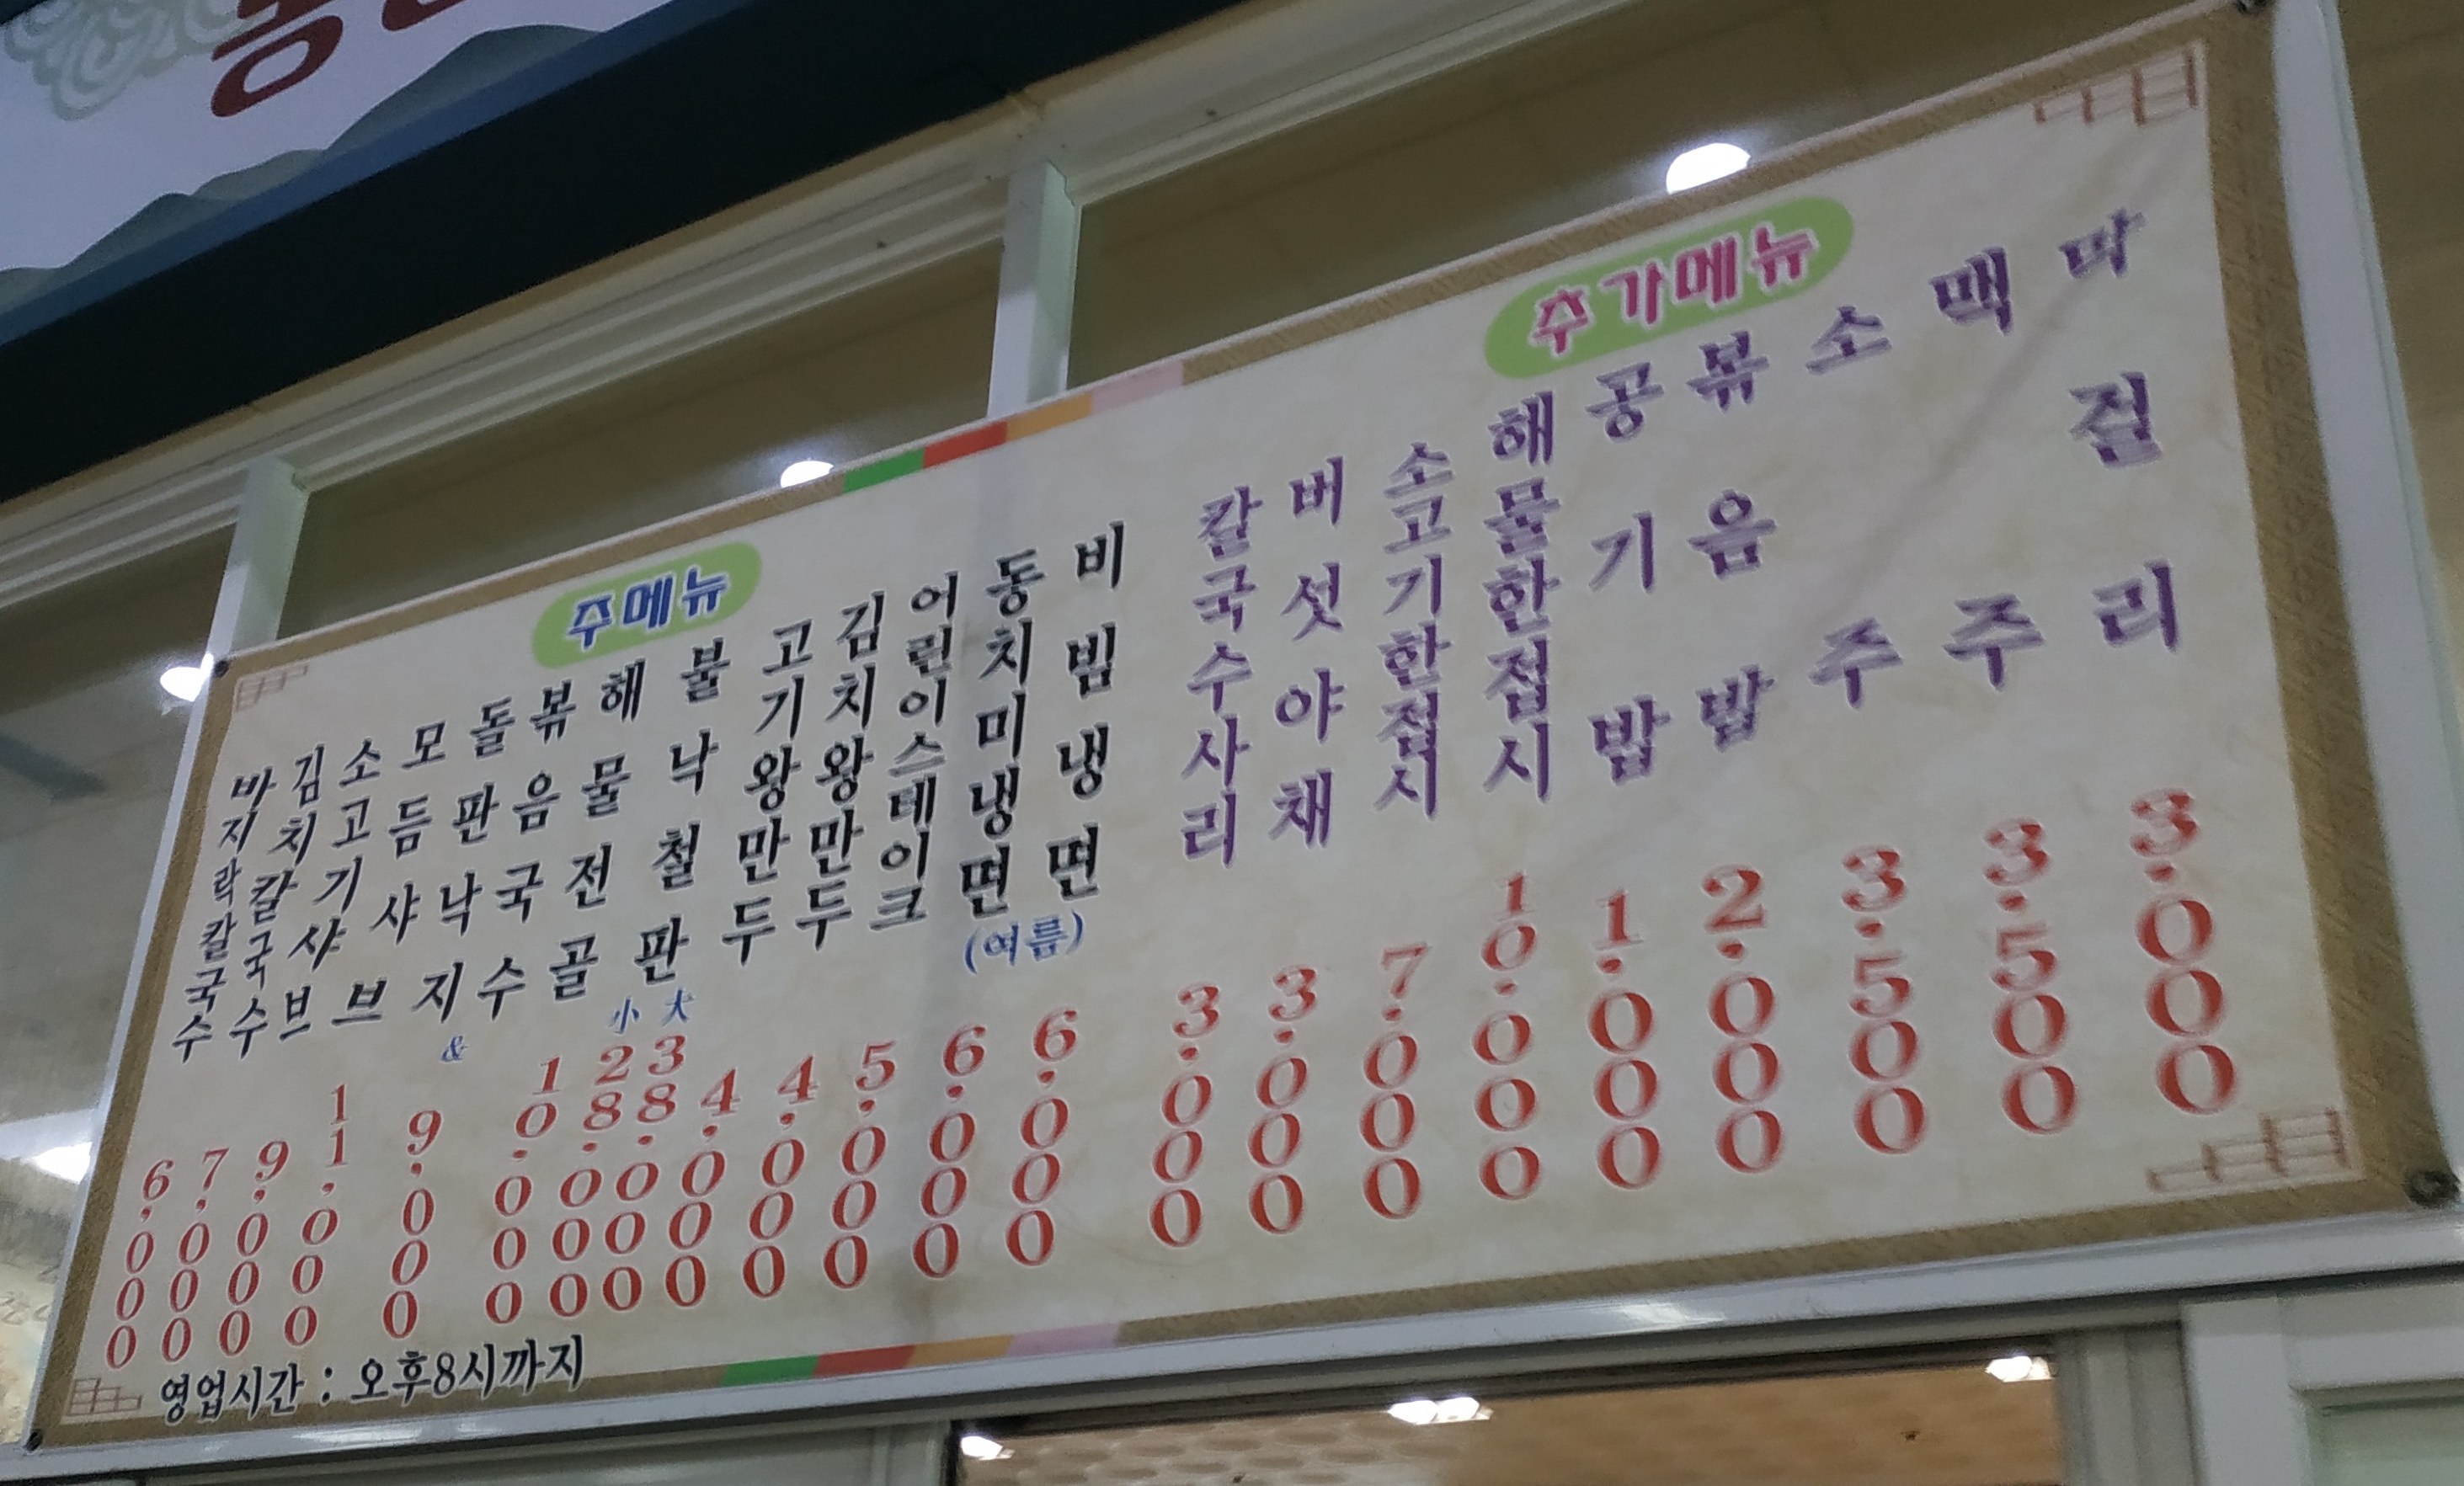 주메뉴
바지락칼국수 6.000
김치칼국수 7.000
소고기샤브 9.000
모듬샤브 11.000
돌판낙지 & 볶음국수 9.000
해물전골 10.000
불낙철판 小 28.000 大 38.000
고기왕만두 4.000
김치왕만두 4.000
어린이스테이크 5.000
동치미냉면 6.000
(여름)
비빔냉면 6.000
추가메뉴
칼국수사리 3.000
버섯야채 3.000
소고기한접시 7.000
해물한접시 10.000
공기밥 1.000
볶음밥 2.000
소주 3.500
맥주 3.500
막걸리 3.000
영업시간 : 오후8시까지